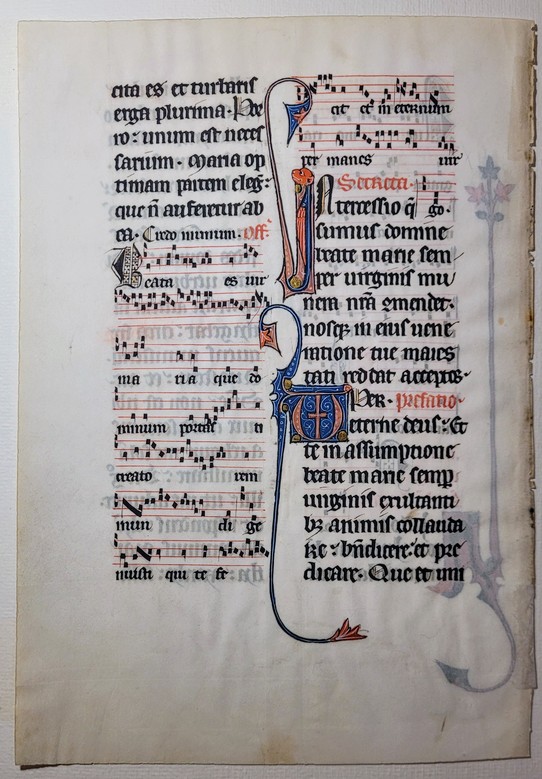 cita es et turbaris
erga plurima. Por
ro: unum est neces
sarium. Maria op
timam partem eleg:
que nͦ auferetur ab
ea. Credo in unum. Off.
Beata es vir
go
ma ri a que do
minum portas ti
creato rem
mun di ge
nuisti qui te fe
cit et in eternum
per manes vir
Secreta. go.
Intercessio q̄s
sumus domine
beate marie sem
per virginis mu
nera nr̄a ꝯmendet.
nosqꝫ in eius vene
ratione tue maies
tati reddat acceptos.
Per. prefatio.
Ueterne deus: Et
te in assumptione
beate marie semꝑ
virginis exultanti
bꝫ animis collauda
re: bn̄dicere: et pre
dicare. Que et uni